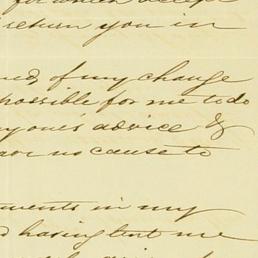 for which accept
return you in
of my change
possible for me to do
one's advice &
no cause to
in my
having lent me